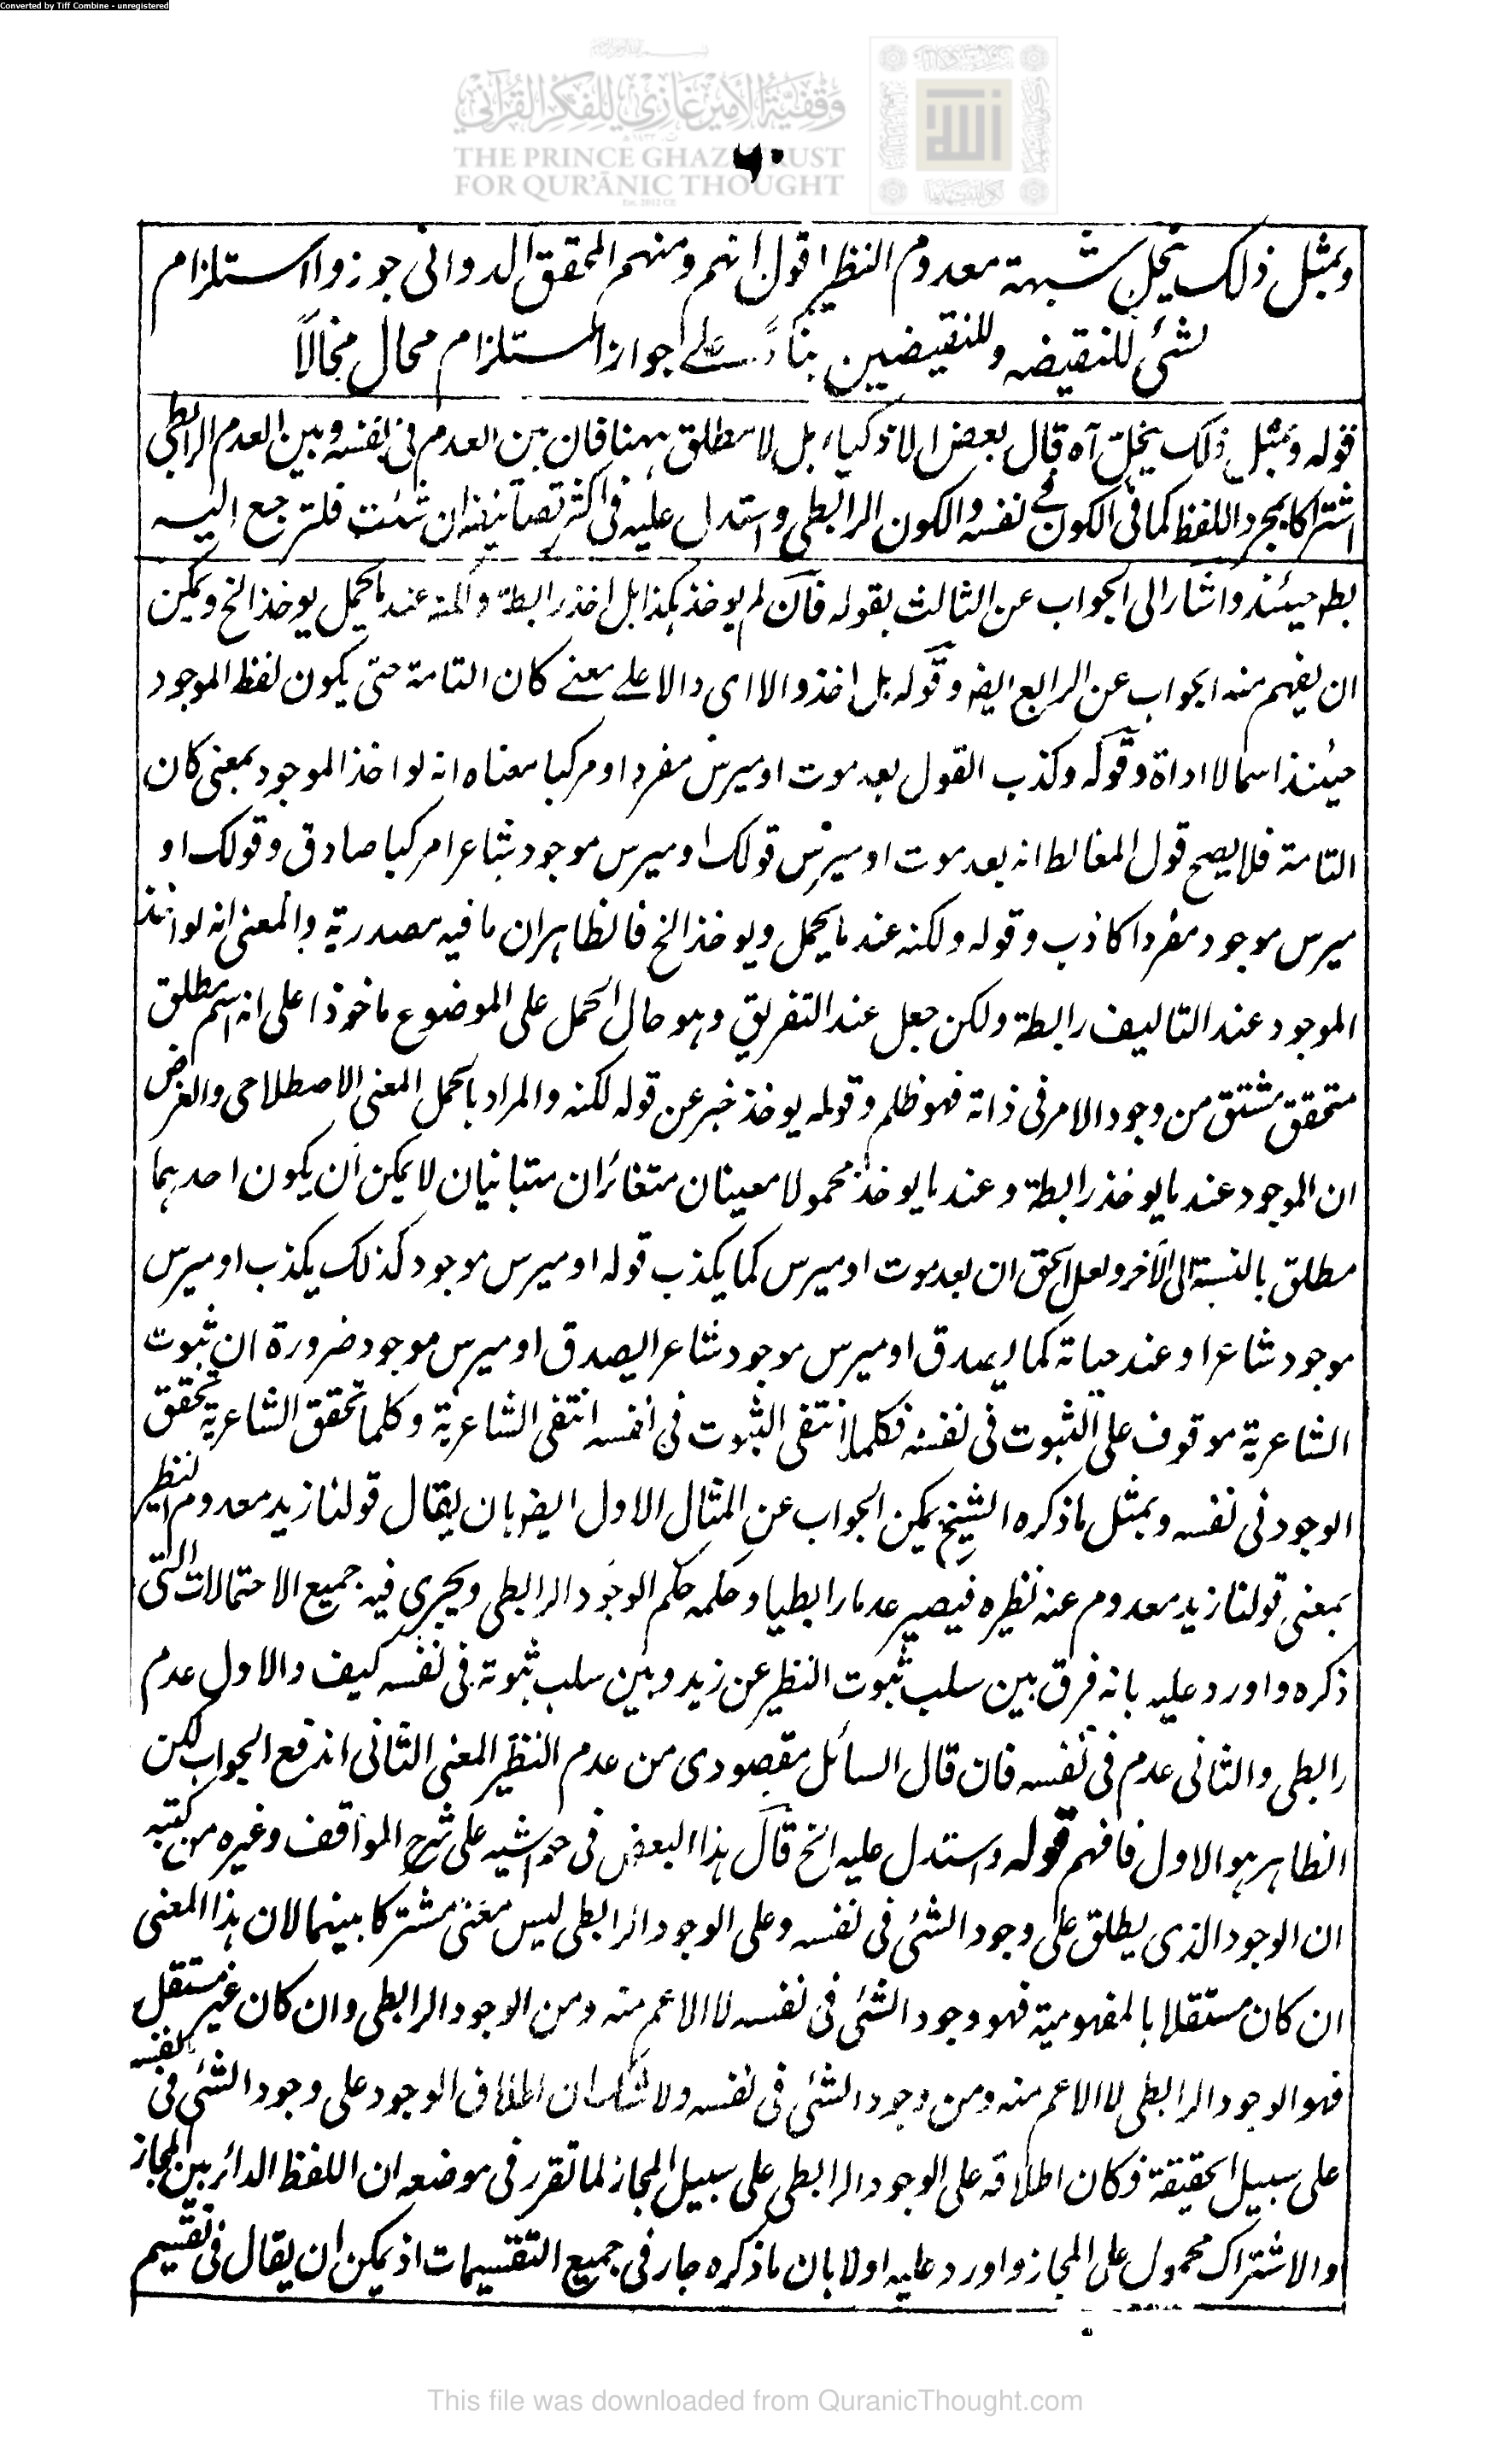 Converted by Tiff Combine - unregistered
وقفية الأمير غازي للفكر القرآني
THE PRINCE GHAZI TRUST
FOR QUR'ĀNIC THOUGHT
٦٠
وبمثل ذلك ينحل شبهة معدوم النظير اقول انهم ومنهم المحقق الدوانى جوزوا استلزام
لشئ للنقيضه وللنقيضين بناءً على جواز استلزام محال محالاً
قوله وبمثل ذلك ينحل آه قال بعض الاذكياء بل لا مطلق ههنا فان بين العدم فى نفسه وبين العدم الرابطى
اشتراكا بمجرد اللفظ كما فى الكون فى نفسه والكون الرابطى واستدل عليه فى اكثر تصانيفه ان شئت فلترجع اليه
بطه حينئذ واشار الى الجواب عن الثالث بقوله فان لم يوخذ هكذا بل اخذ رابطة ولكنه عند ما يحمل يوخذ الخ ويمكن
ان يفهم منه الجواب عن الرابع ايضا وقوله بل اخذ والا اى دالا على معنے كان التامة حتى يكون لفظ الموجود
حينئذ اسما لا اداة وقوله وكذب القول بعد موت اوميرس مفردا ومركبا معناه انه لو اخذ الموجود بمعنى كان
التامة فلا يصح قول المغالط انه بعد موت اوميرس قولك اوميرس موجود شاعرا مركبا صادق وقولك او
ميرس موجود مفردا كاذب وقوله ولكنه عند ما يحمل ويوخذ الخ فالظاهر ان ما فيه مصدرية والمعنى انه لو اخذ
الموجود عند التاليف رابطة ولكن جعل عند التفريق وهو حال الحمل على الموضوع ماخوذا على انه اسم مطلق
متحقق مشتق من وجود الامر فى ذاته فهو ظلم وقوله يوخذ خبر عن قوله لكنه والمراد بالحمل المعنى الاصطلاحى والغرض
ان الموجود عند ما يوخذ رابطة وعند ما يوخذ محمولا معينان متغائران متبائنان لا يمكن ان يكون احدهما
مطلق بالنسبة الى الآخر ولعل الحق ان بعد موت اوميرس كما يكذب قوله اوميرس موجود كذلك يكذب اوميرس
موجود شاعرا وعند حياته كما يصدق اوميرس موجود شاعرا يصدق اوميرس موجود ضرورة ان ثبوت
الشاعرية موقوف على الثبوت فى نفسه فكلما انتفى الثبوت فى نفسه انتفى الشاعرية وكلما تحقق الشاعرية تحقق
الوجود فى نفسه وبمثل ما ذكره الشيخ يمكن الجواب عن المثال الاول ايضا بان يقال قولنا زيد معدوم النظير
بمعنى قولنا زيد معدوم عنه نظيره فيصير عدما رابطيا وحكمه حكم الوجود الرابطى ويجرى فيه جميع الاحتمالات التى
ذكره واورد عليه بانه فرق بين سلب ثبوت النظير عن زيد وبين سلب ثبوته فى نفسه كيف والاول عدم
رابطى والثانى عدم فى نفسه فان قال السائل مقصودى من عدم النظير المعنى الثانى اندفع الجواب لكن
الظاهر هو الاول فافهم قوله واستدل عليه الخ قال هذا البعض فى حواشيه على شرح المواقف وغيره من كتبه
ان الوجود الذى يطلق على وجود الشئ فى نفسه وعلى الوجود الرابطى ليس معنى مشتركا بينهما لان هذا المعنى
ان كان مستقلا بالمفهومية فهو وجود الشئ فى نفسه لا الاعم منه ومن الوجود الرابطى وان كان غير مستقل
فهو الوجود الرابطى لا الاعم منه ومن وجود الشئ فى نفسه ولا شك ان اطلاق الوجود على وجود الشئ فى نفسه
على سبيل الحقيقة فكان اطلاقه على الوجود الرابطى على سبيل المجاز لما تقرر فى موضعه ان اللفظ الدائر بين المجاز
والاشتراك محمول على المجاز واورد عليه اولا بان ما ذكره جار فى جميع التقسيمات اذ يمكن ان يقال فى تقسيم
This file was downloaded from QuranicThought.com